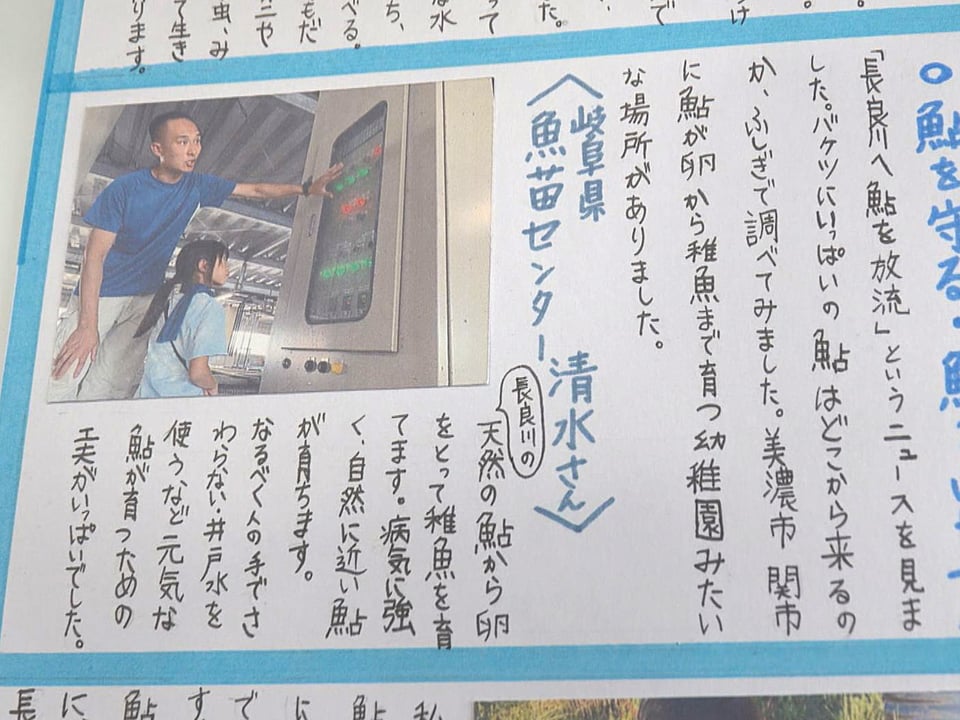 鮎を守る・
「長良川へ鮎を放流」というニュースを見ま
した。バケツにいっぱいの鮎はどこから来るの
か、ふしぎで調べてみました。美濃市関市
に鮎が卵から稚魚まで育つ幼稚園みたい
な場所がありました。
〈岐阜県
魚苗センター 清水さん〉
長良川の
天然の鮎から卵
をとって稚魚を育
てます。病気に強
く、自然に近い鮎
が育ちます。
なるべく人の手でさ
わらない井戸水を
使うなど元気な
鮎が育つための
工夫がいっぱいでした。